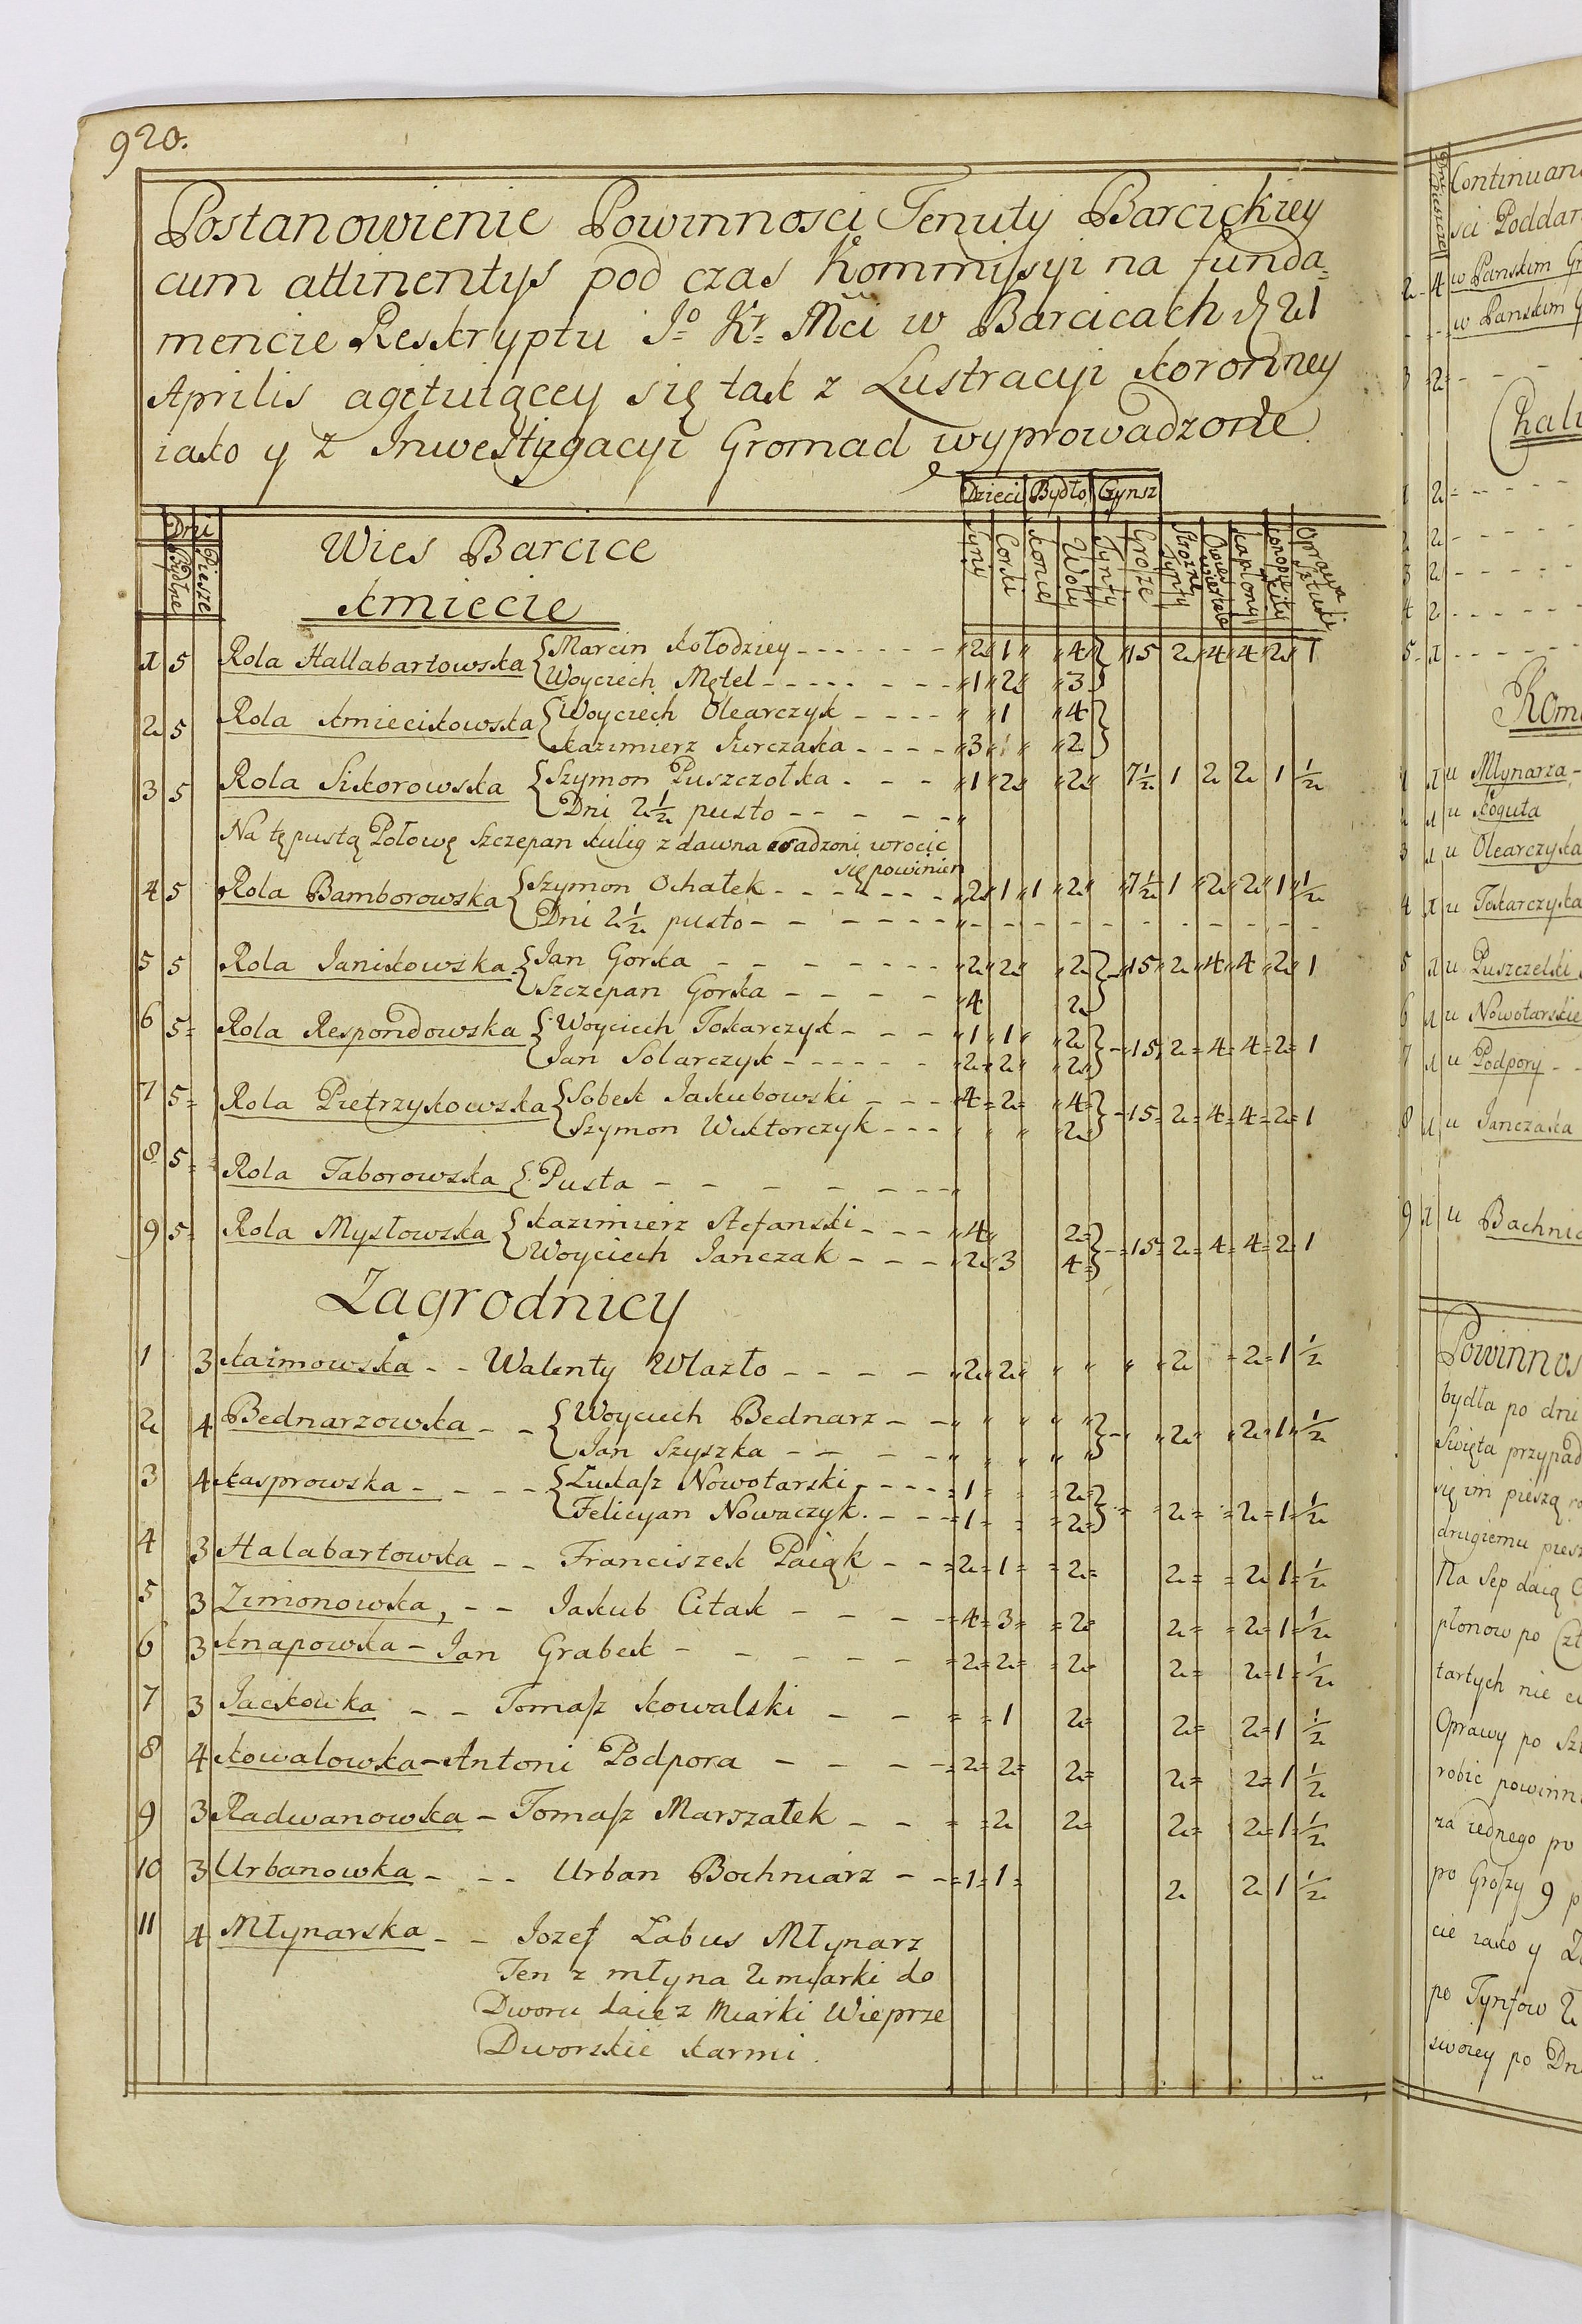 920.
Postanowienie Powinnosci Tenuty Barcickiey
cum attinentys pod czas Kommissyi na funda=
mencie Reskryptu Jo Kr: Mci w Barcicach d 21
Aprilis agituiącey się tak z Lustracyi koronney
iako y z Inwestygacyi Gromad wyprowadzone.
Dzieci Bydło Czynsz
Dni
Bydlne Piesze
Wies Barcice
Syny Corki Konie Woły Tynfy Grosze Strozne Tynfy Owies cwiertnie Kapłony Konopie Kity Oprawa Sztuki
Kmiecie
1 5 Rola Hallabartowska { Marcin Kołodziey - - - - - - - 2 1 4 } 15 2 4 4 2 1
Woyciech Mętel - - - - - - - 1 2 3
2 5 Rola Kmiecikowska { Woyciech Olearczyk - - - - 1 4 }
Kazimierz Jurczaka - - - - 3 1 2
3 5 Rola Sikorowska { Szymon Puszczołka - - - 1 2 2 7½ 1 2 2 1 ½
Dni 2½ pusto - - - - - -
Na tę pustą Połowę Szczepan Kulig z dawna osadzoni wrocic
się powinien
4 5 Rola Bamborowska { Szymon Ochałek - - - - - - 2 1 1 2 7½ 1 2 2 1 ½
Dni 2½ pusto - - - - - - - - - - - - - - - - -
5 5 Rola Janikowska { Jan Gorka - - - - - - - - 2 2 2 } 15 2 4 4 2 1
Szczepan Gorka - - - - 4 2
6 5 Rola Respondowska { Woyciech Tokarczyk - - - 1 1 2 } 15 2 4 4 2 1
Jan Solarczyk - - - - - 2 2 2
7 5 Rola Pietrzykowska { Sobek Jakubowski - - - 4 2 4 } 15 2 4 4 2 1
Szymon Wiktorczyk - - - 2
8 5 Rola Taborowska { Pusta - - - - - - - -
9 5 Rola Mysłowska { Kazimierz Stefanski - - - 4 2 } 15 2 4 4 2 1
Woyciech Janczak - - - 2 3 4
Zagrodnicy
1 3 Kaimowska - - Walenty Wlazło - - - - 2 2 2 2 1 ½
2 4 Bednarzowska - - { Woyciech Bednarz - - } 2 2 1 ½
Jan Szyszka - - - -
3 4 Kasprowska - - - - { Łukasz Nowotarski - - - - 1 2 } 2 2 1 ½
Felicyan Nowaczyk. - - - 1 2
4 3 Halabartowska - - Franciszek Paiąk - - 2 1 2 2 2 1 ½
5 3 Zimonowska, - - Jakub Citak - - - - 4 3 2 2 2 1 ½
6 3 Knapowska - Jan Grabek - - - - - - 2 2 2 2 2 1 ½
7 3 Jackowka - - Tomasz Kowalski - - 1 2 2 2 1 ½
8 4 Kowalowska - Antoni Podpora - - - - 2 2 2 2 2 1 ½
9 3 Radwanowska - Tomasz Marszałek - - 2 2 2 2 1 ½
10 3 Urbanowka - - - Urban Bochniarz - - 1 1 2 2 1 ½
11 4 Młynarska - - Jozef Łabus Młynarz
Ten z młyna 2 miarki do
Dworu daie z Miarki Wieprze
Dworskie karmi.
Continuan
sci Poddan
2 4 w Panskim Gr
w Panskim G
3 2 - - - -
Chału
1 2 - - - - -
2 2 - - - -
3 2 - - - -
4 2 - - - -
5 1 - - - -
Kom
1 1 u Młynarza -
2 1 u Koguta
3 1 u Olearczyka
4 1 u Tokarczyka
5 1 u Puszczelki
6 1 u Nowotarskie
7 1 u Podpory - -
8 1 u Janczaka
9 1 u Bachnia
Powinnos
bydła po dni
Swięta przypad
się im pieszą ro
drugiemu piesz
Na Sep daią
płonow po Czt
tartych nie
Oprawy po Szt
robic powinni
za iednego po
po Groszy 9 p
cie iako y Za
po Tynfow 2
swoiey po Dn